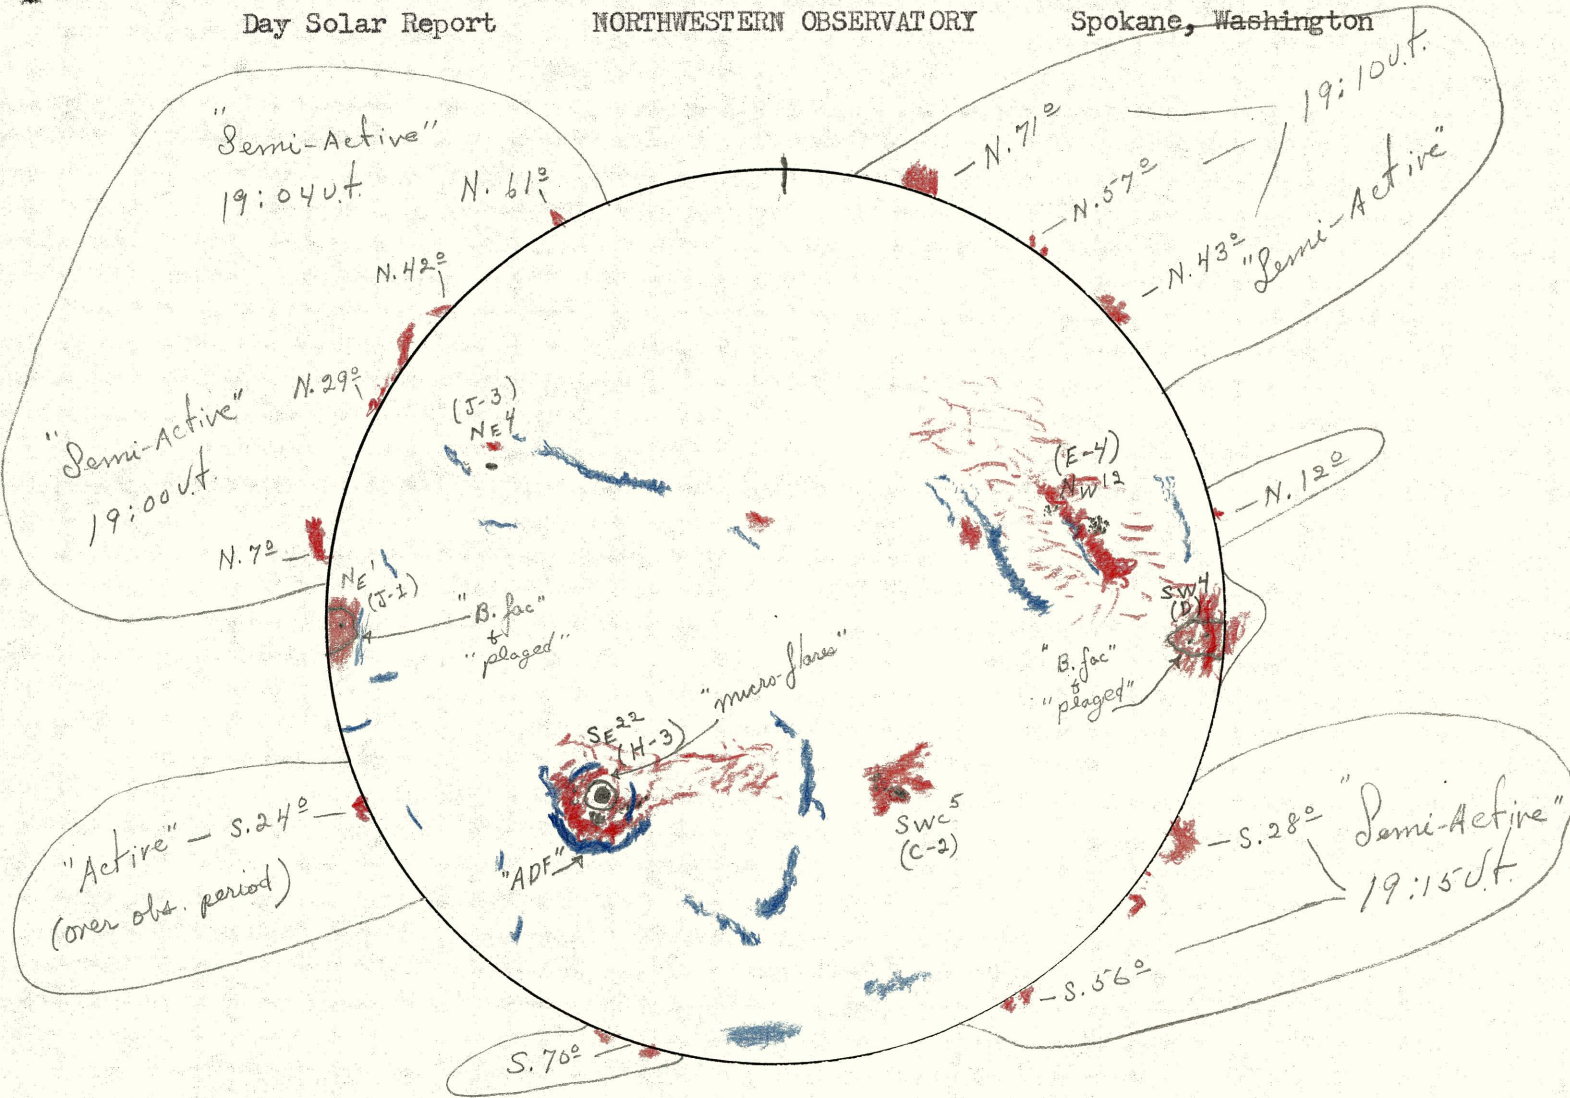 Day Solar Report NORTHWESTERN OBSERVATORY Spokane, Washington
"Semi-Active"
19:04 U.t.
N. 61º
N. 42º
N. 29º
"Semi-Active"
19:00 U.t.
N. 7º
N. 71º
N. 57º
N. 43º
19:10 U.t.
"Semi-Active"
N. 12º
(J-3)
NE 4
(E-4)
NW 12
NE 1
(J-1)
"B. fac"
&
"plaged"
SW 4
(D)
"B. fac"
&
"plaged"
"micro-flares"
SE 22
(H-3)
"ADF"
SWC 5
(C-2)
"Active" — S. 24º
(over obs. period)
S. 28º
"Semi-Active"
19:15 U.t.
S. 56º
S. 70º